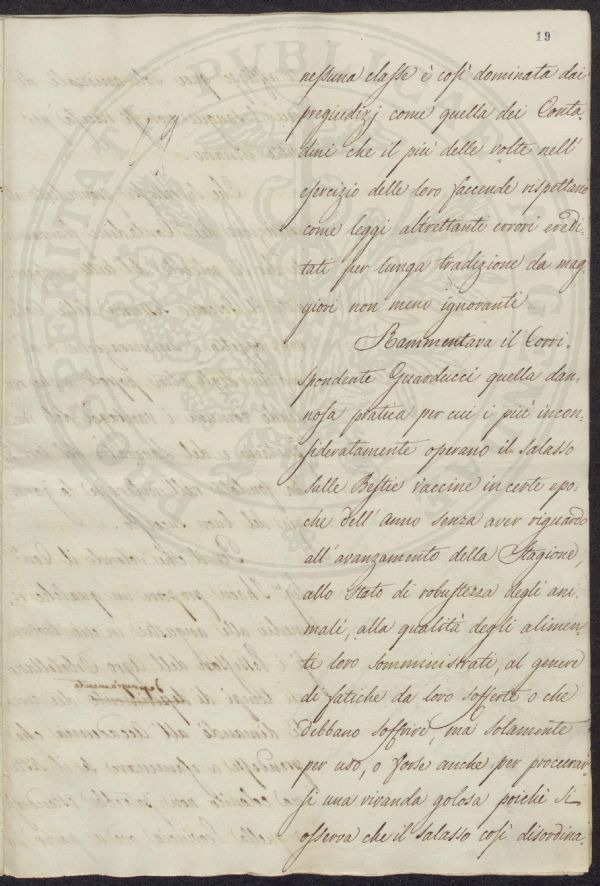 19
nessuna classe è così dominata dai
pregiudizj come quella dei Conta-
dini che il più delle volte nell'
esercizio delle loro faccende rispettano
come leggi altrettanti errori eredi-
tati per lunga tradizione da mag-
giori non meno ignoranti.
Rammentava il Corri-
spondente Guarducci quella dan-
nosa pratica per cui i più incon-
sideratamente operano il salasso
sulle Bestie vaccine in certe epo-
che dell'anno senza aver riguardo
all'avanzamento della Stagione,
allo Stato di robustezza degli ani-
mali, alla qualità degli alimen-
ti loro somministrati, al genere
di fatiche da loro sofferte o che
debbano soffrire, ma solamente
per uso, o forse anche per procurar-
si una vivanda golosa poichè si
osserva che il salasso così disordina-